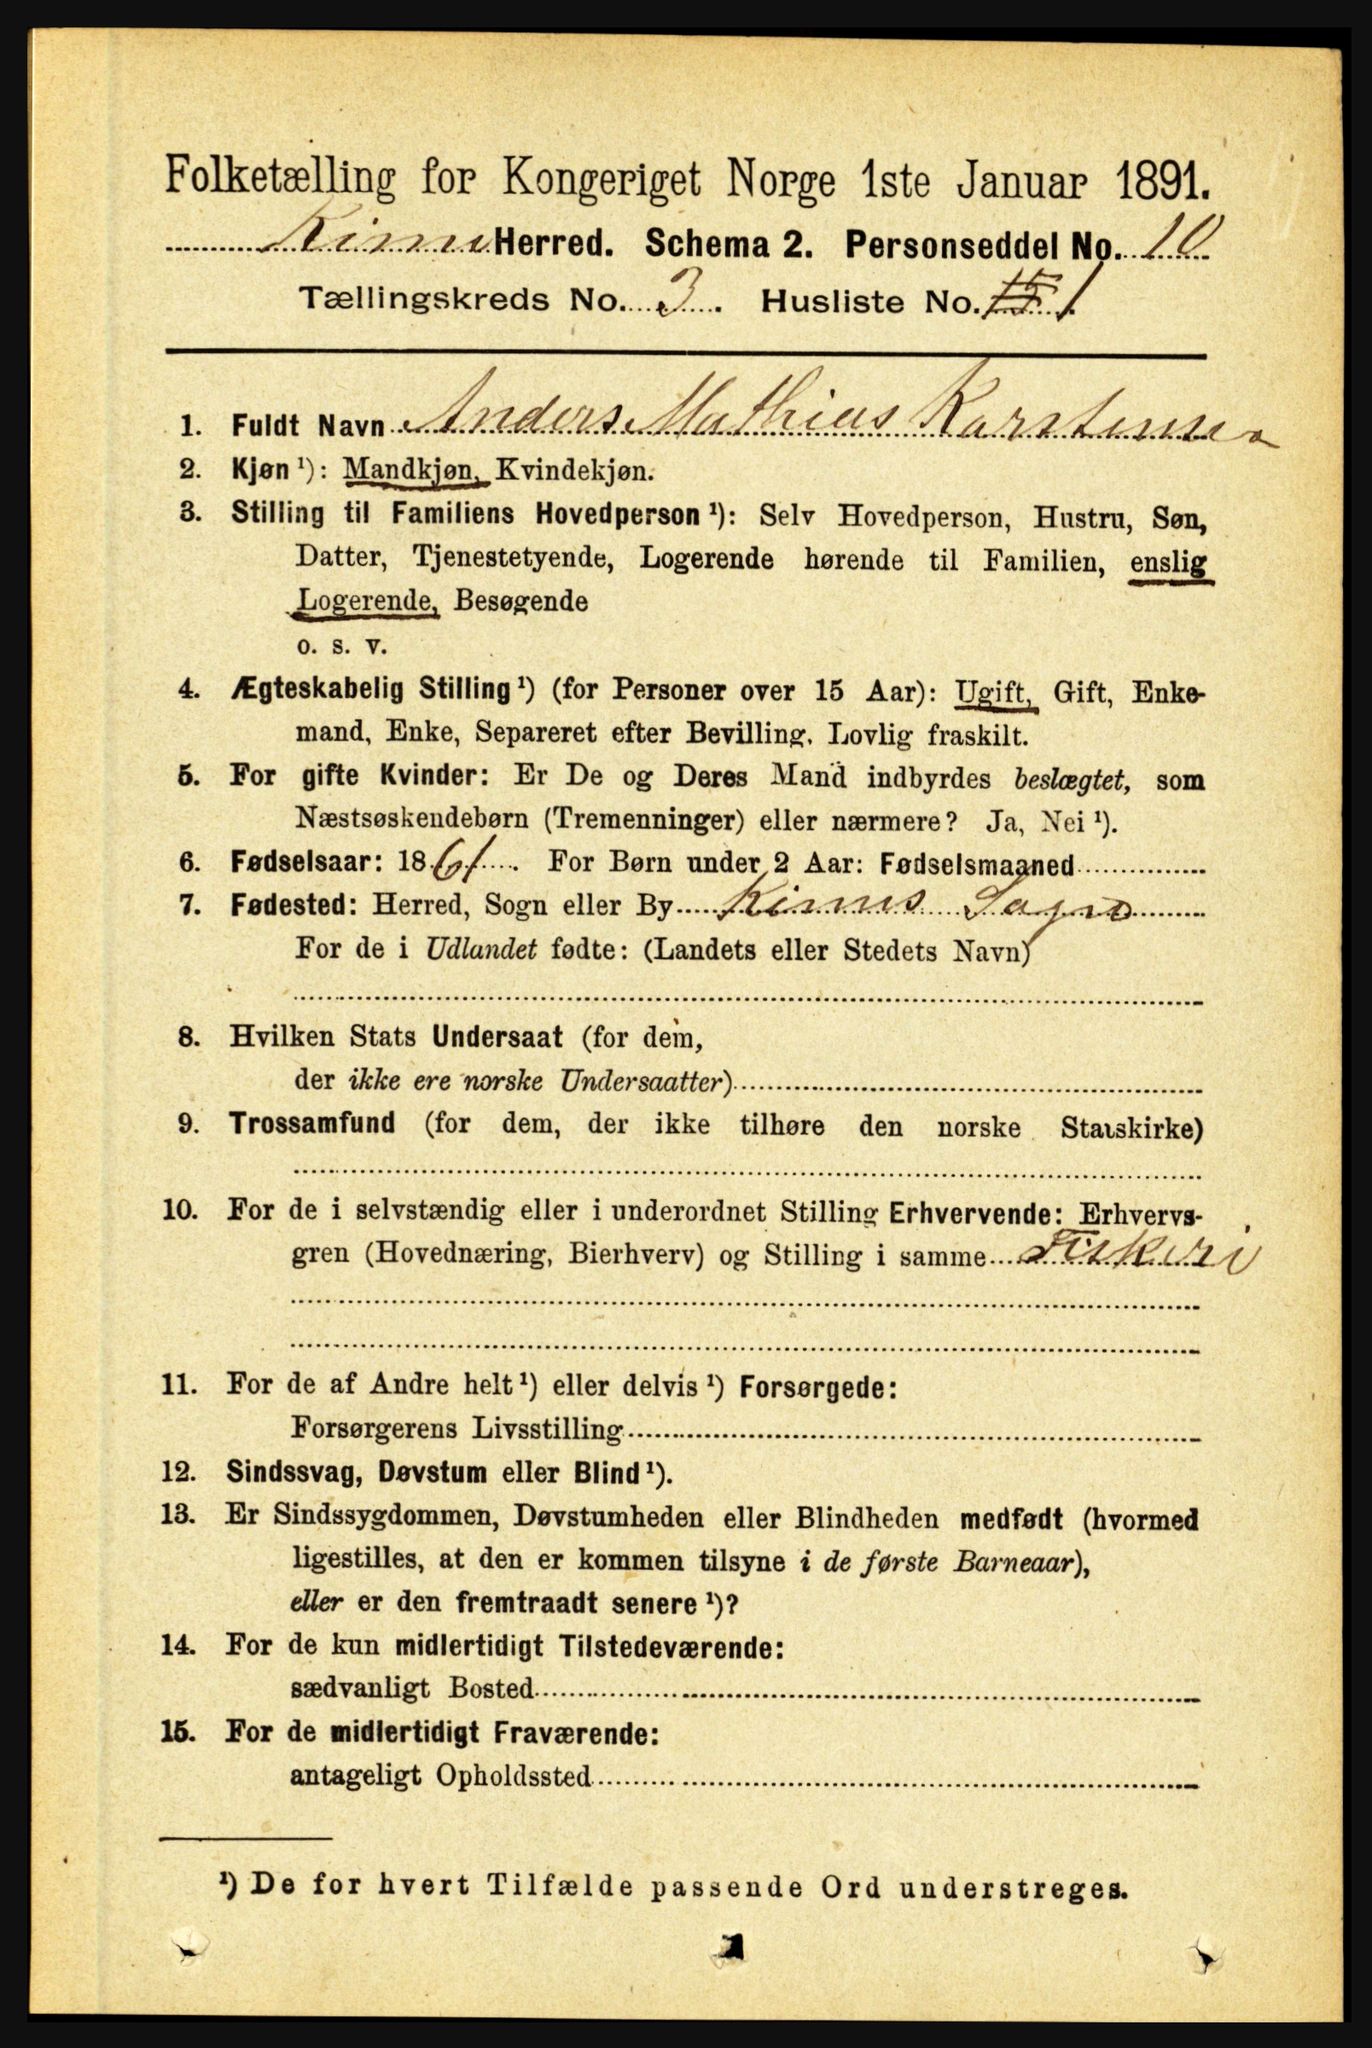 Folketælling for Kongeriget Norge 1ste Januar 1891.
Kinn Herred. Schema 2. Personseddel No. 10
Tællingskreds No. 3. Husliste No. 15 1
1. Fuldt Navn Anders Mathias Karstensen
2. Kjøn ¹): Mandkjøn, Kvindekjøn.
3. Stilling til Familiens Hovedperson ¹): Selv Hovedperson, Hustru, Søn,
Datter, Tjenestetyende, Logerende hørende til Familien, enslig
Logerende, Besøgende
o. s. v.
4. Ægteskabelig Stilling ¹) (for Personer over 15 Aar): Ugift, Gift, Enke-
mand, Enke, Separeret efter Bevilling. Lovlig fraskilt.
5. For gifte Kvinder: Er De og Deres Mand indbyrdes beslægtet, som
Næstsøskendebørn (Tremenninger) eller nærmere? Ja, Nei ¹).
6. Fødselsaar: 1861. For Børn under 2 Aar: Fødselsmaaned
7. Fødested: Herred, Sogn eller By Kinns Sogn
For de i Udlandet fødte: (Landets eller Stedets Navn)
8. Hvilken Stats Undersaat (for dem,
der ikke ere norske Undersaatter)
9. Trossamfund (for dem, der ikke tilhøre den norske Statskirke)
10. For de i selvstændig eller i underordnet Stilling Erhvervende: Erhvervs-
gren (Hovednæring, Bierhverv) og Stilling i samme Fiskeri
11. For de af Andre helt ¹) eller delvis ¹) Forsørgede:
Forsørgerens Livsstilling
12. Sindssvag, Døvstum eller Blind ¹).
13. Er Sindssygdommen, Døvstumheden eller Blindheden medfødt (hvormed
ligestilles, at den er kommen tilsyne i de første Barneaar),
eller er den fremtraadt senere ¹)?
14. For de kun midlertidigt Tilstedeværende:
sædvanligt Bosted
15. For de midlertidigt Fraværende:
antageligt Opholdssted
¹) De for hvert Tilfælde passende Ord understreges.